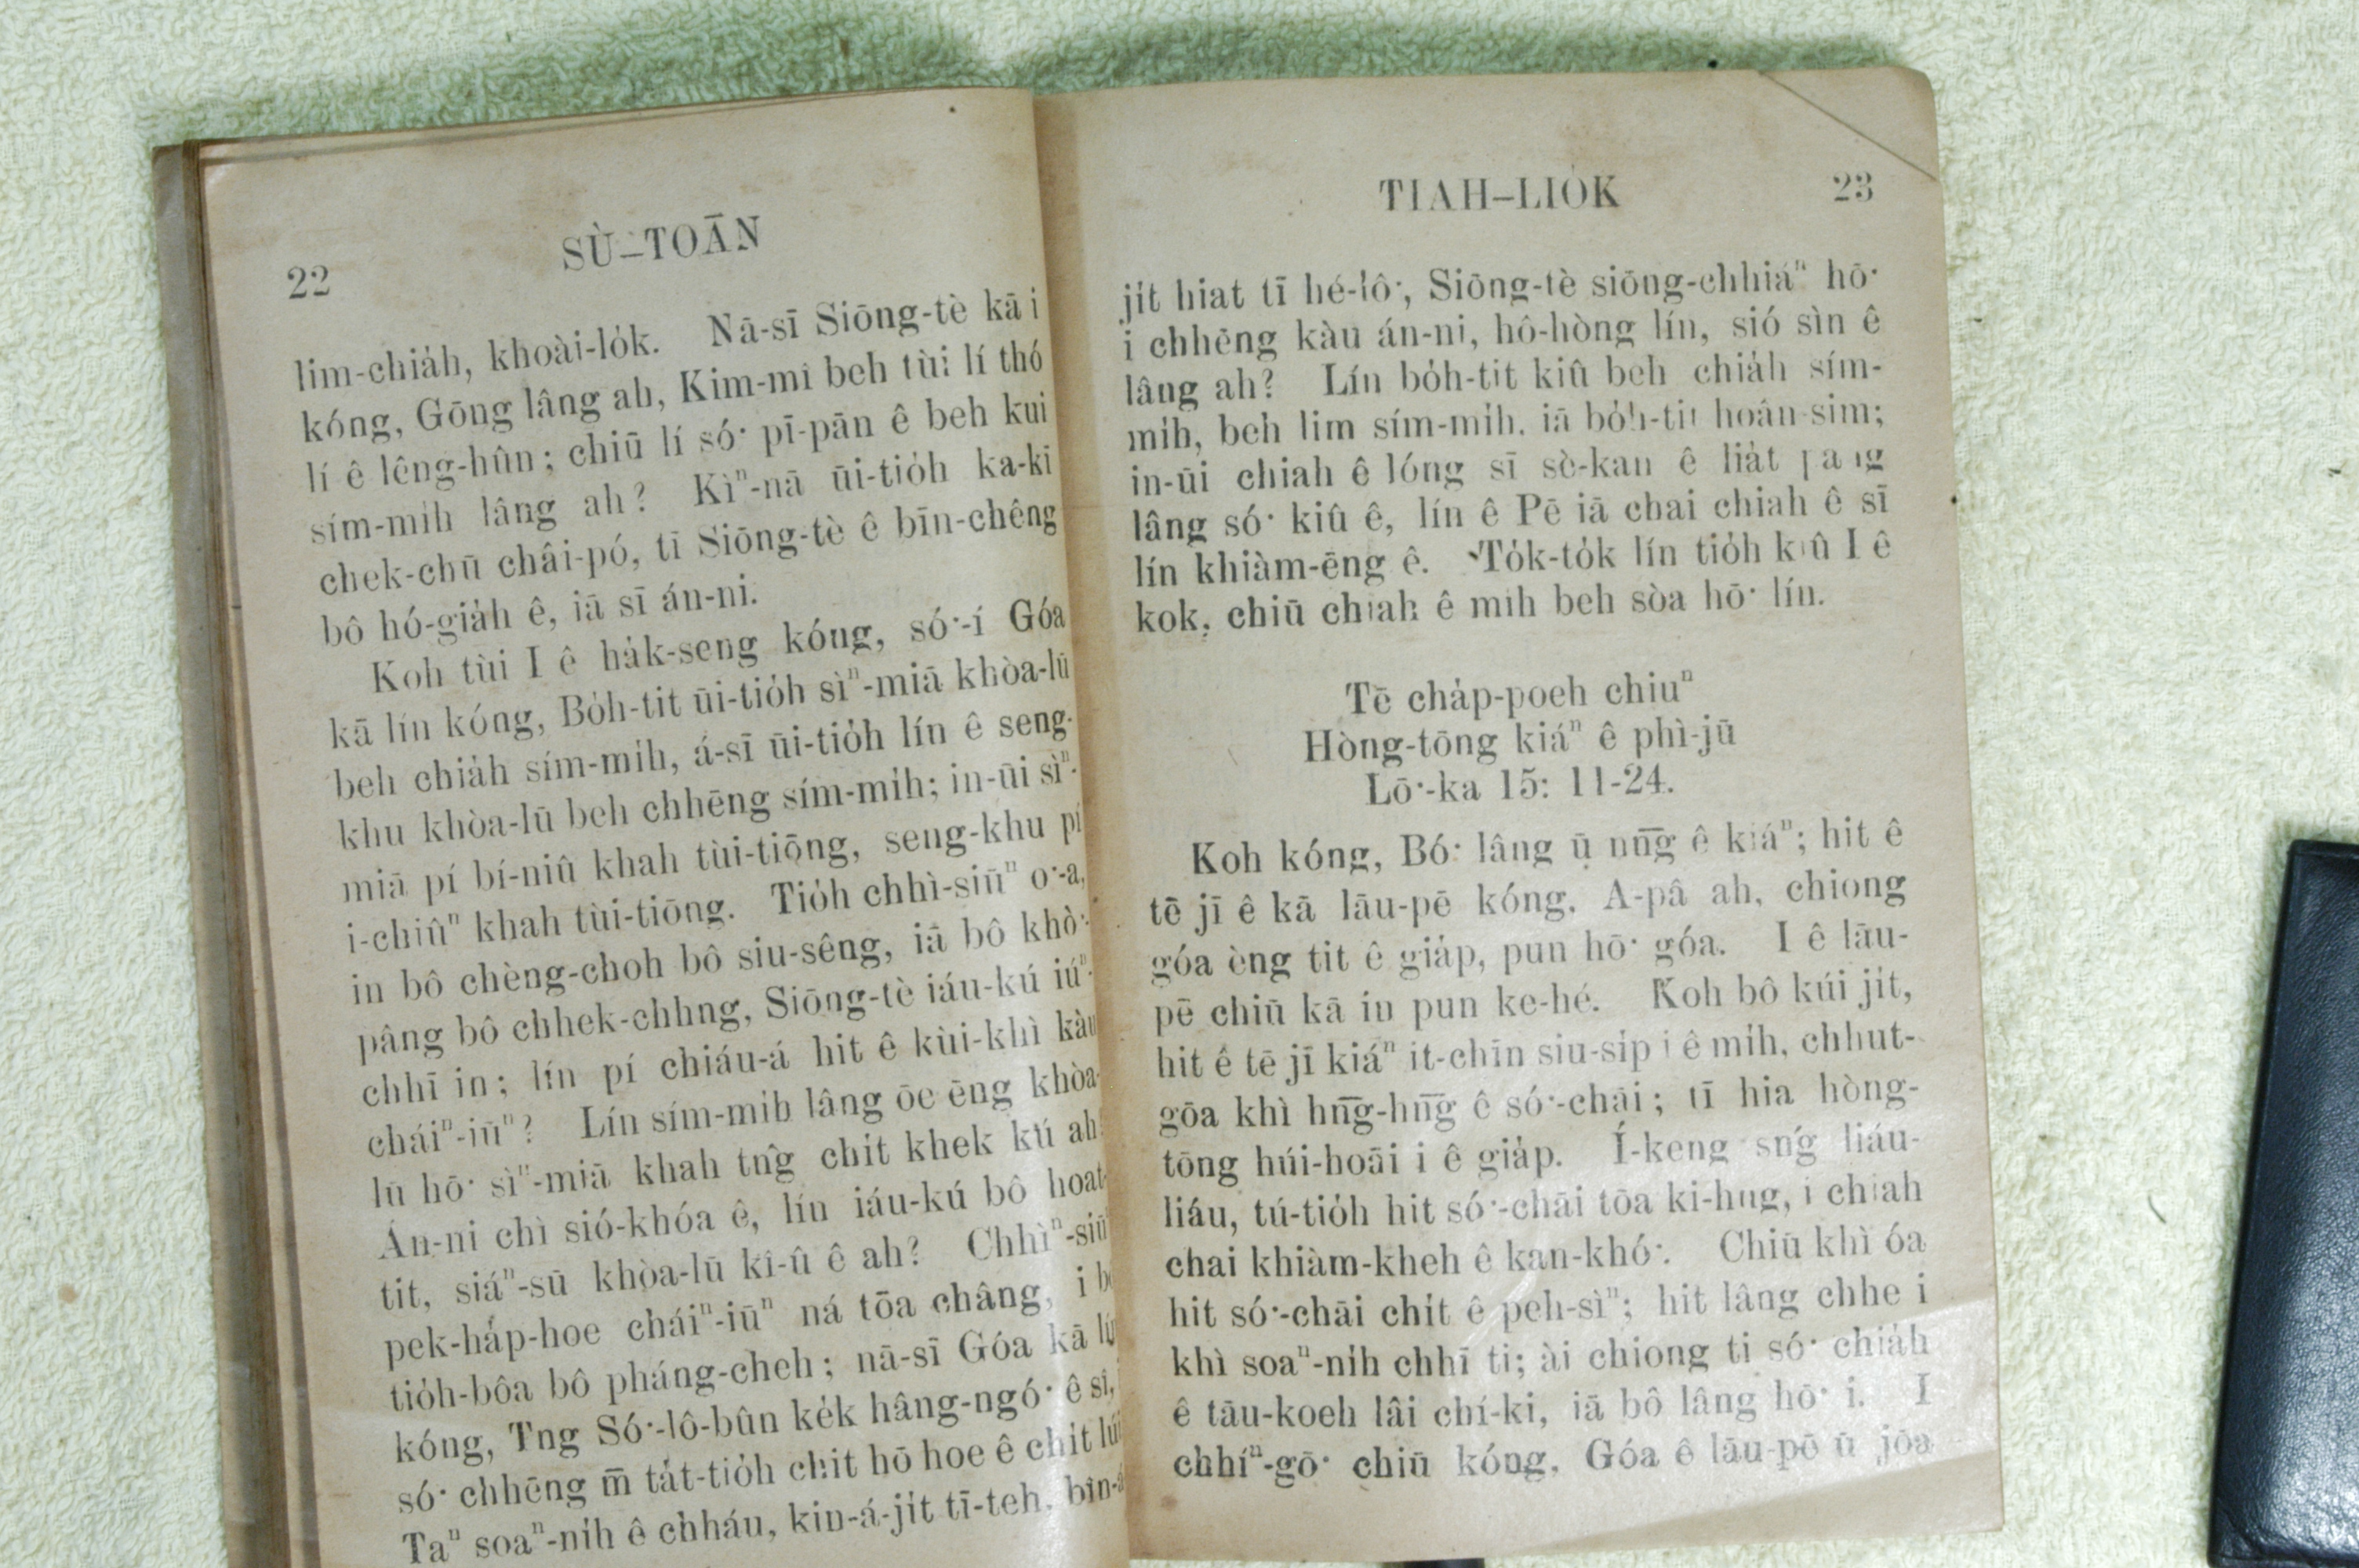 22
SÙ–TOĀN
lim-chia̍h, khoài-lo̍k. Nā-sī Siōng-tè kā i
kóng, Gōng lâng ah, Kim-mî beh tùi lí thó
lí ê lêng-hûn; chiū lí só͘ pī-pān ê beh kui
sím-mi̍h lâng ah? Kìⁿ-nā ūi-tio̍h ka-kī
chek-chū châi-pó, tī Siōng-tè ê bīn-chêng
bô hó-gia̍h ê, iā sī án-ni.
Koh tùi I ê ha̍k-seng kóng, só͘-í Góa
kā lín kóng, Bo̍h-tit ūi-tio̍h sìⁿ-miā khòa-lū
beh chia̍h sím-mi̍h, á-sī ūi-tio̍h lín ê seng-
khu khòa-lū beh chhēng sím-mi̍h; in-ūi sìⁿ-
miā pí bí-niû khah tùi-tiōng, seng-khu pí
i-chiûⁿ khah tùi-tiōng. Tio̍h chhì-siūⁿ o͘-a,
in bô chèng-choh bô siu-sêng, iā bô khò͘-
pâng bô chhek-chhng, Siōng-tè iáu-kú iúⁿ-
chhī in; lín pí chiáu-á hit ê kùi-khì kàu
cháiⁿ-iūⁿ? Lín sím-mih lâng ōe ēng khòa-
lū hō͘ sìⁿ-miā khah tn̂g chi̍t khek kú ah
Án-ni chì sió-khóa ê, lín iáu-kú bô hoat-
tit, siáⁿ-sū khòa-lū kî-û ê ah? Chhìⁿ-siūⁿ
pek-ha̍p-hoe cháiⁿ-iūⁿ ná tōa châng, i
tio̍h-bôa bô pháng-cheh; nā-sī Góa kā lín
kóng, Tng Só͘-lô-bûn ke̍k hâng-ngó͘ ê sî,
só͘ chhēng m̄ ta̍t-tio̍h chit hō hoe ê chi̍t lúi
Taⁿ soaⁿ-ni̍h ê chháu, kin-á-ji̍t tī-teh, bîn-á
TIAH–LIO̍K 23
ji̍t hiat tī hé-lô͘, Siōng-tè siōng-chhiáⁿ hō͘
i chhēng kàu án-ni, hô-hòng lín, sió sìn ê
lâng ah? Lín bo̍h-tit kiû beh chia̍h sím-
mi̍h, beh lim sím-mi̍h, iā bo̍h-tit hoân-sim;
in-ūi chiah ê lóng sī sè-kan ê lia̍t pang
lâng só͘ kiû ê, lín ê Pē iā chai chiah ê sī
lín khiàm-ēng ê. To̍k-to̍k lín tio̍h kiû I ê
kok, chiū chiah ê mi̍h beh sòa hō͘ lín.
Tē cha̍p-poeh chiuⁿ
Hòng-tōng kiáⁿ ê phì-jū
Lō͘-ka 15: 11-24.
Koh kóng, Bó͘ lâng ū nn̄g ê kiáⁿ; hit ê
tē jī ê kā lāu-pē kóng, A-pâ ah, chiong
góa èng tit ê gia̍p, pun hō͘ góa. I ê lāu-
pē chiū kā in pun ke-hé. Koh bô kúi ji̍t,
hit ê tē jī kiáⁿ it-chīn siu-si̍p i ê mi̍h, chhut-
gōa khì hn̄g-hn̄g ê só͘-chāi; tī hia hòng-
tōng húi-hoāi i ê gia̍p. Í-keng sńg liáu-
liáu, tú-tio̍h hit só͘-chāi tōa ki-hng, i chiah
chai khiàm-kheh ê kan-khó͘. Chiū khì óa
hit só͘-chāi chi̍t ê peh-sìⁿ; hit lâng chhe i
khì soaⁿ-ni̍h chhī ti; ài chiong ti só͘ chia̍h
ê tāu-koeh lâi chí-ki, iā bô lâng hō͘ i. I
chhíⁿ-gō͘ chiū kóng, Góa ê lāu-pē ū jōa